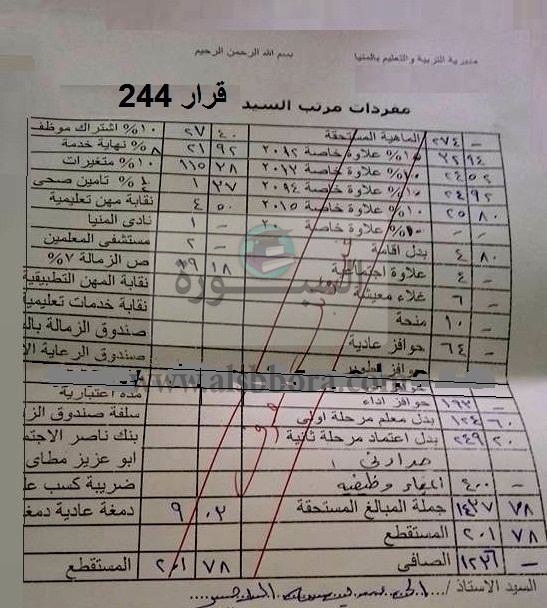 مديرية التربية والتعليم بالمنيا
بسم الله الرحمن الرحيم
قرار 244
مفردات مرتب السيد
٢٧٤ - الماهية المستحقة ٢٧ ٤٠ ١٠% اشتراك موظف
٩٤ ١٠% علاوة خاصة ٢٠١٢ ٢١ ٩٢ نهاية خدمة
٢٤ ٥٢ ١٠% علاوة خاصة ٢٠١٣ ١١٥ ٢٨ ١٠% متغيرات
٢٤ ٩٢ ١٠% علاوة خاصة ٢٠١٤ ١ ٣٧ تأمين صحى
٢٥ ٨٠ ١٠% علاوة خاصة ٢٠١٥ ٤ ٥٠ نقابة مهن تعليمية
- - ١٠% علاوة خاصة ٢٠ ١ - نادى المنيا
٤ ٨٠ بدل اقامة ٢ - مستشفى المعلمين
٤ - علاوة اجتماعية ١٩ ١٨ ص الزمالة ٧%
٦ - غلاء معيشة نقابة المهن التطبيقية
١٠ - منحة نقابة خدمات تعليمية
٦٤ - حوافز عادية صندوق الزمالة
صندوق الرعاية
السبورة
www.alsbbora.com
١٩٢ - حوافز اداء مدة اعتبارية
١٢٤ ٦٠ بدل معلم مرحلة اولى سلفة صندوق
٢٤٩ ٢٠ بدل اعتماد مرحلة ثانية بنك ناصر
ابو عزيز مطاى
٤٠٠ - ضريبة كسب
١٤٣٧ ٧٨ جملة المبالغ المستحقة ٩ ٠٢ دمغة عادية
٢٠١ ٧٨ المستقطع
١٢٣٦ - الصافى ٢٠١ ٧٨ المستقطع
السيد الاستاذ /